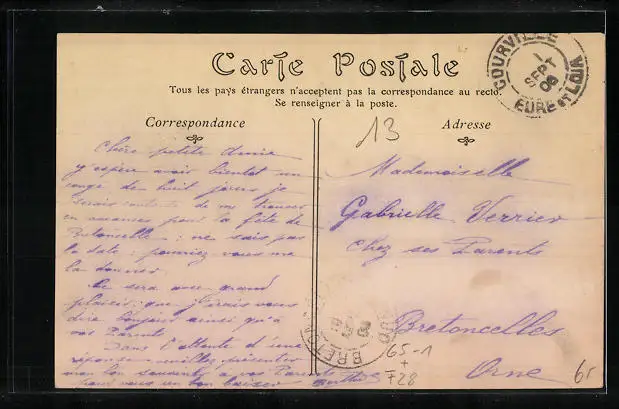 Carte Postale
Tous les pays étrangers n'acceptent pas la correspondance au recto.
Se renseigner à la poste.
Correspondance
Adresse
COURVILLE
1
SEPT
EURE ET LOIR
13
Chère petite Amie
j'espère avoir bientôt un
congé de huit jours je
serais contente de me trouver
en vacances pour la fête de
Bretoncelle : ne sais pas
la date : pourriez vous me
la donner
Ce sera avec grand
plaisir que j'irais vous
dire bonjour ainsi qu'à
vos Parents
Dans l'attente d'une
réponse veuillez présenter
mon bon souvenir à vos Parents
pour vous un bon baiser
Mademoiselle
Gabrielle Verrier
Chez ses Parents
Bretoncelles
Orne
65-1
+
F28